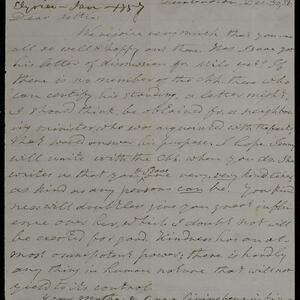 Elyria - Jan 1857
Dear Lettie
We rejoice very much that you are
all so well & happy out there. Has Isaac got
his letter of dismission for Milo yet? If
there is no member of the Chh there who
can certify his standing, a letter might,
I should think, be obtained from a neighbor-
ing minister, who was acquainted with the facts,
that would answer his purpose. I hope Jenny
will unite with the Chh. when you do. She
writes as that you are very, very kind takes
as kind as any persons can be. Your kind
ness will doubtless give you great influ-
ence over her, which I doubt not will
be exerted for good. Kindness has an al-
most omnipotent power; there is hardly
any thing in human nature that will not
yield to its control.